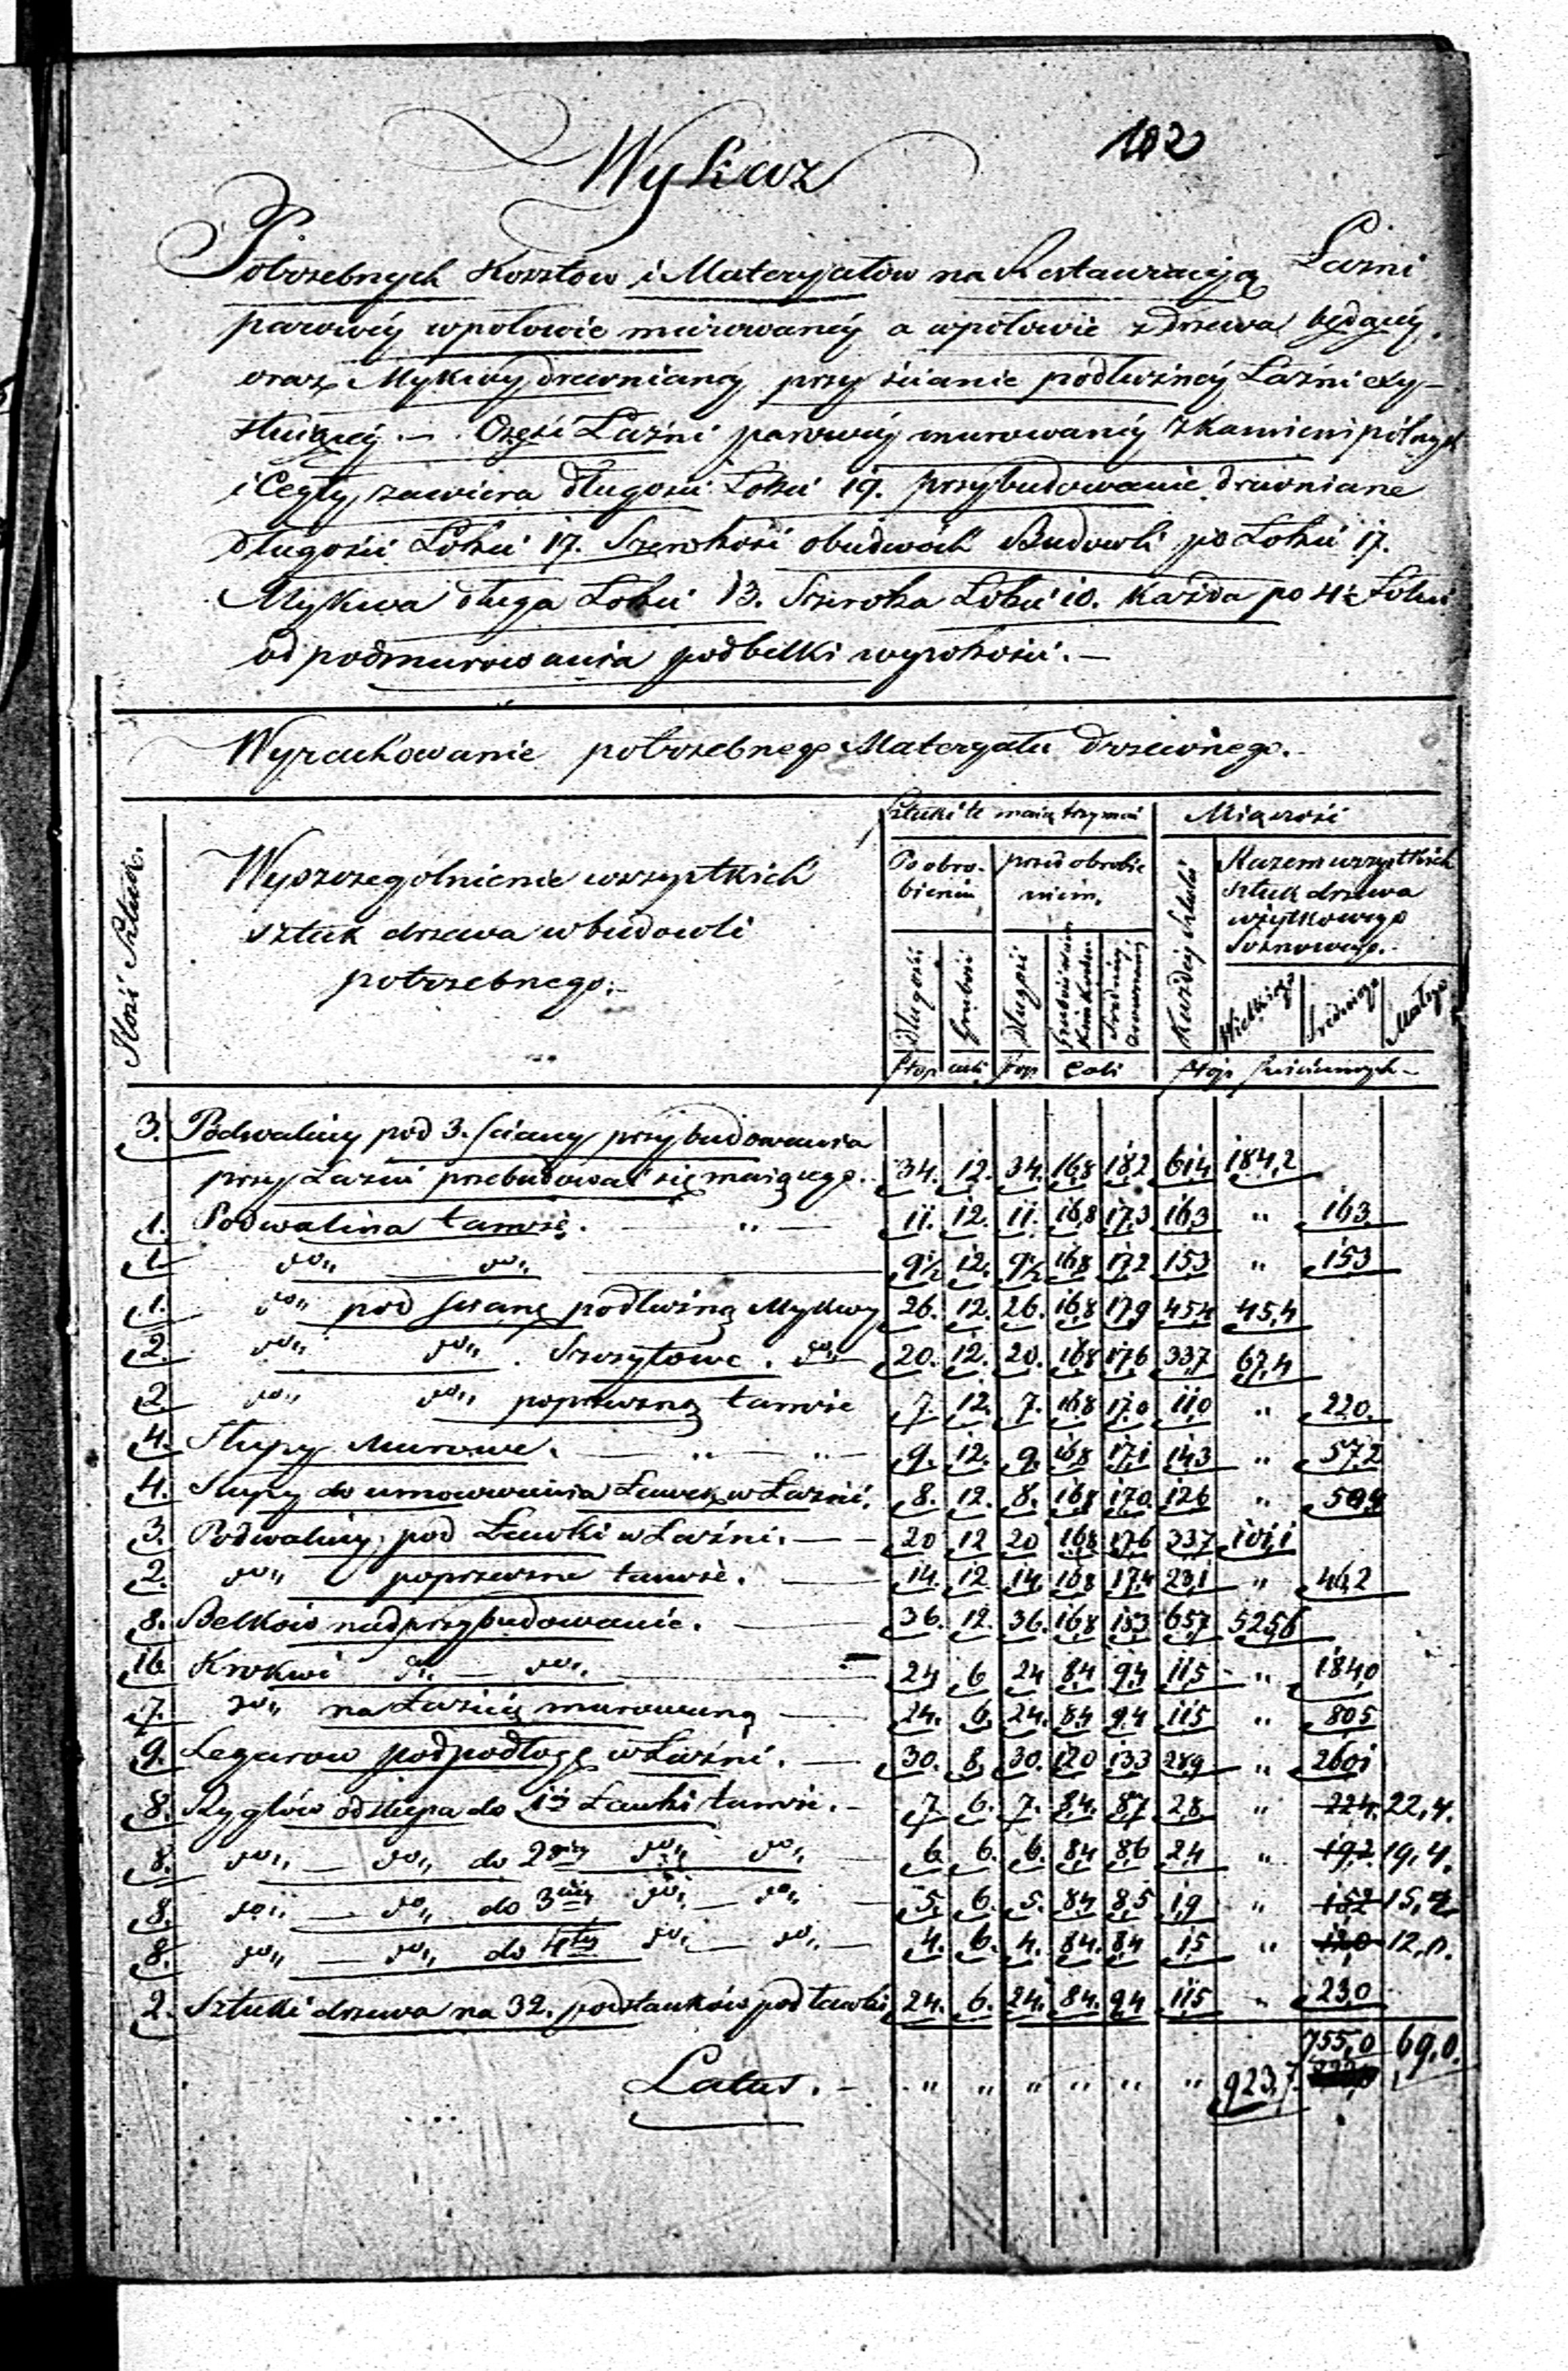 102
Wykaz
Potrzebnych Kosztow i Materyałow na Restauracyją Łazni
parowéy wpołowie murowanéy a wpołowie zdrzewa będącéy,
oraz Mykwy drewnianéy przy scianie podłużnéy Łaźni exy-
stuiącéy. — Część Łaźni parowéy murowanéy z kamieni polnych
i Cegły, zawiera długosci Łokci 19. przybudowanie drewniane
długości Łokci 17. Szerokości obudwóch Budowli po Łokci 17.
Mykwa długa Łokci 13. Szeroka Łokci 10. każda po 4½ Łokci
od podmurowania podbelki wysokości. —
Wyrachowanie potrzebnego Materyału Drzewnego. —
Ilość Sztuk.
Wyszczegolnienie wszystkich
sztuk drzewa wbudowli
potrzebnego. —
Sztuki te maią trzymać
Po obro-
bieniu
przed obrobie
niem.
Długości Grubości Długości
Średnicy
Miąższości
Każdéy Sztuki
Razem wszystkich
sztuk drzewa
użytkowego
Sosnowego.
Wielkiego Średniego Małego
Stop cali Stop Cali Stóp sześciennych —
3. Podwaliny pod 3. sciany przybudowania
przy Łazni przebudować się maiącego. 34. 12. 34. 16,8 18,2 61,4 184,2
1. Podwalina tamże. — „ — 11. 12. 11. 16,8 17,3 16,3 „ 16,3
1. do„ do„ — 9½ 12. 9½ 16,8 17,2 15,3 „ 15,3
1. do„ pod scianę podłużną Mykwy 26. 12. 26. 16,8 17,9 45,4 45,4
2. do„ do„ Szczytowe. do„ 20. 12. 20. 16,8 17,6 33,7 67,4
2. do„ do„ poprzeczną tamże 7. 12. 7. 16,8 17,0 11,0 „ 22,0
4. Słupy Murowe. — „ — „ 9. 12. 9. 16,8 17,1 14,3 „ 57,2
4. Słupy do umocowania Ławek w Łazni. 8. 12. 8. 16,8 17,0 12,6 „ 50,4
3. Podwaliny pod Ławki w Łaźni. — 20 12 20 16,8 17,6 33,7 101,1
2. do„ poprzeczne tamże. — 14. 12. 14 16,8 17,4 23,1 „ 46,2
8. Belków nad przybudowanie. — 36. 12. 36. 16,8 18,3 65,7 525,6
16. Krokwi do„ — do„ — 24 6 24 8,4 9,4 11,5 „ 184,0
7. do„ na Łaźnią murowaną — 24. 6. 24. 8,4 9,4 11,5 „ 80,5
9. Legarow pod podłogę w Łaźni. — 30. 8. 30. 12,0 13,3 28,9 „ 260,1
8. Ryglów od słupa do 1éy Ławki tamże. — 7 6. 7. 8,4. 8,7 2,8 „ 22,4. 22,4.
8. do„ — do„ do 2giéy do„ do„ — 6. 6. 6. 8,4 8,6 2,4 „ 19,2. 19,4.
8. do„ — do„ do 3ciéy do„ — do„ — 5. 6. 5. 8,4 8,5 1,9 „ 15,2 15,2
8. do„ — do„ do 4téy do„ — do„ — 4. 6. 4. 8,4. 8,4 1,5 „ 12,0 12,0.
2. Sztuki drzewa na 32. podstawków pod ławki 24. 6. 24. 8,4. 9,4 11,5 „ 23,0
755,0 69,0.
Latus. — „ „ „ „ „ „ 923,7.